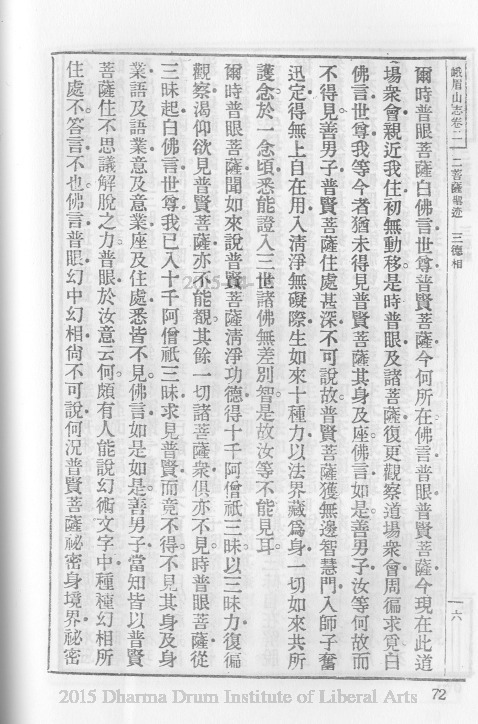 峨眉山志卷二 二菩薩聖迹 三德相 一六
爾時普眼菩薩白佛言世尊普賢菩薩今何所在佛言普眼普賢菩薩今現在此道
場衆會親近我住初無動移是時普眼及諸菩薩復更觀察道場衆會周徧求覓白
佛言世尊我等今者猶未得見普賢菩薩其身及座佛言如是善男子汝等何故而
不得見善男子普賢菩薩住處甚深不可說故普賢菩薩獲無邊智慧門入師子奮
迅定得無上自在用入清淨無礙際生如來十種力以法界藏爲身一切如來共所
護念於一念頃悉能證入三世諸佛無差別智是故汝等不能見耳
爾時普眼菩薩聞如來說普賢菩薩清淨功德得十千阿僧祇三昧以三昧力復徧
觀察渴仰欲見普賢菩薩亦不能覩其餘一切諸菩薩衆俱亦不見時普眼菩薩從
三昧起白佛言世尊我已入十千阿僧祇三昧求見普賢而竟不得不見其身及身
業語及語業意及意業座及住處悉皆不見佛言如是如是善男子當知皆以普賢
菩薩住不思議解脫之力普眼於汝意云何頗有人能說幻術文字中種種幻相所
住處不答言不也佛言普眼幻中幻相尙不可說何況普賢菩薩祕密身境界祕密
72
2015 Dharma Drum Institute of Liberal Arts